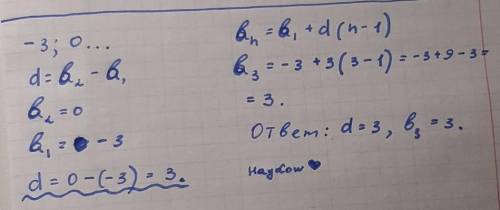 -3; 0...
d = b₂ - b₁
b₂ = 0
b₁ = -3
d = 0 - (-3) = 3.
bₙ = b₁ + d(n-1)
b₃ = -3 + 3(3-1) = -3+9-3=
= 3.
Ответ: d = 3, b₃ = 3.